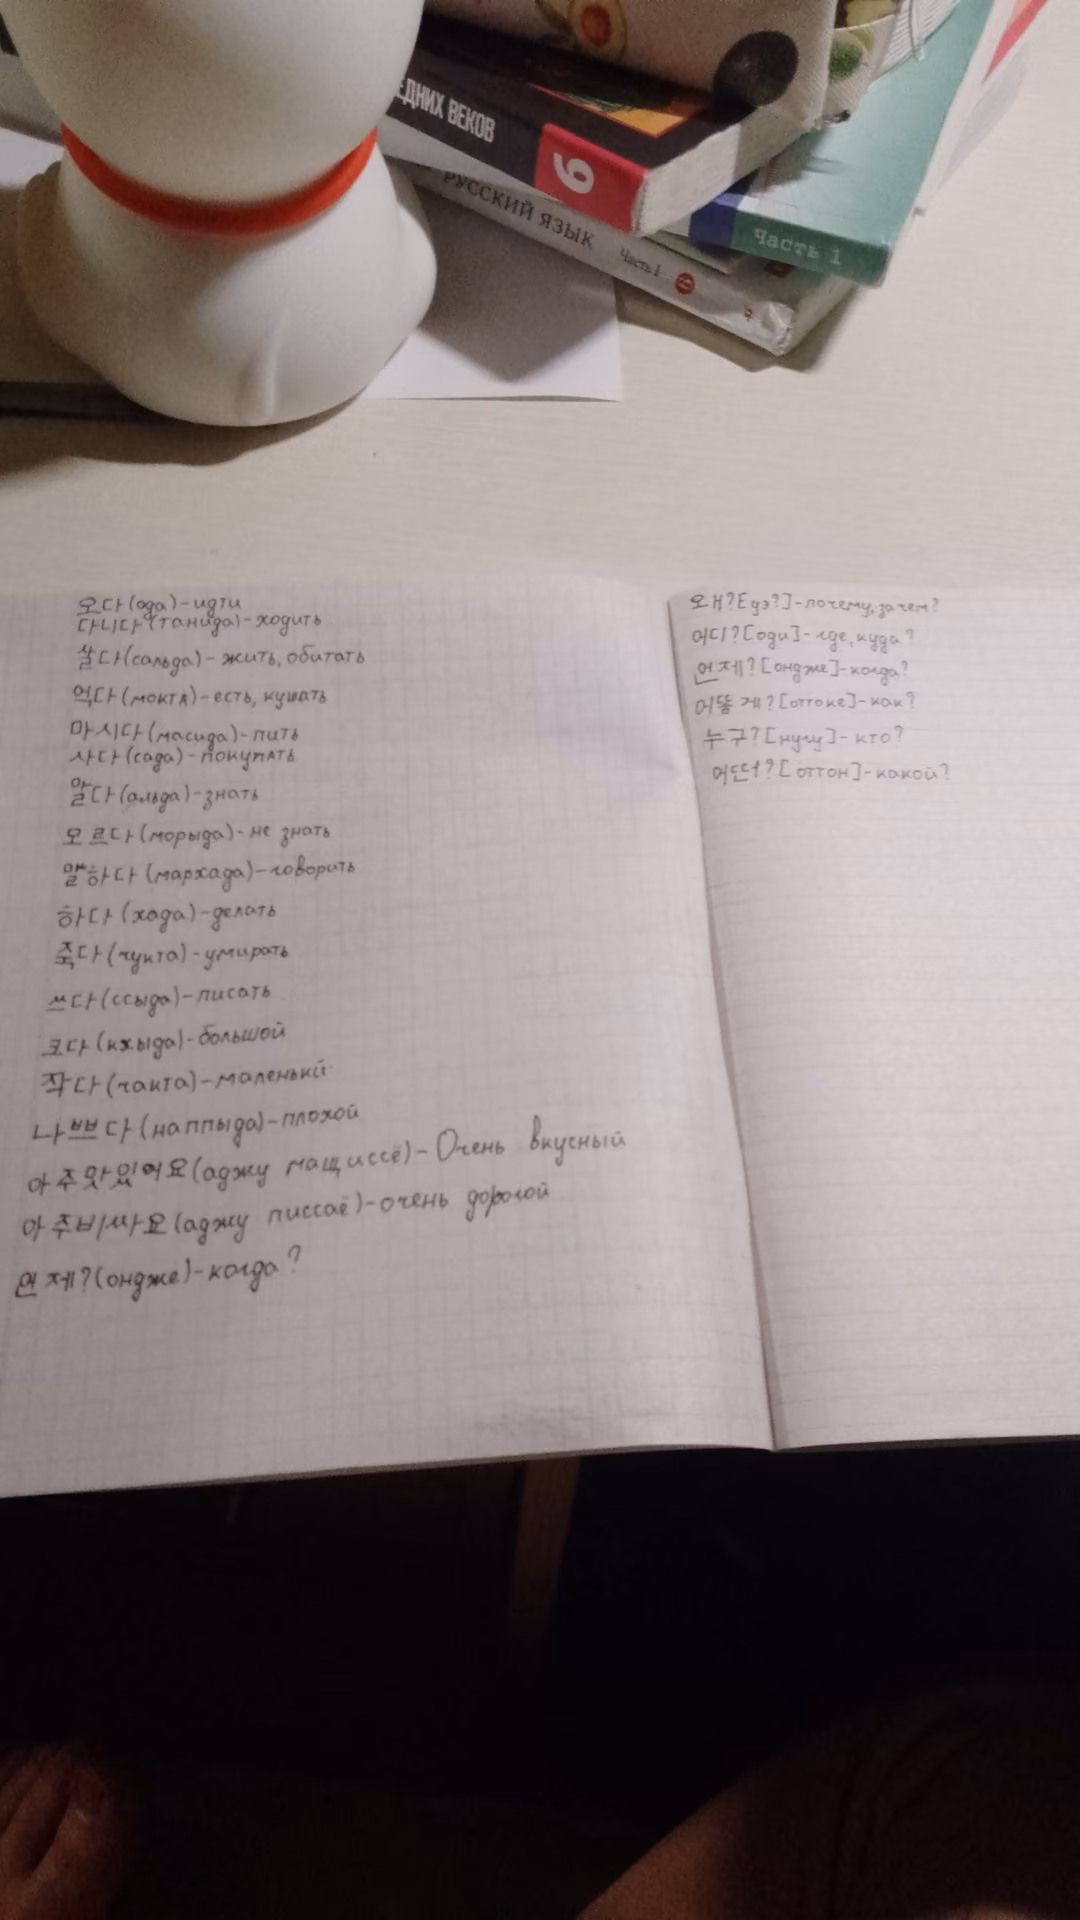 ЕДНИХ ВЕКОВ
6
РУССКИЙ ЯЗЫК
Часть 1
Часть 1
오다 (ода) - идти
다니다 (танида) - ходить
살다 (сальда) - жить, обитать
먹다 (мокта) - есть, кушать
마시다 (масида) - пить
사다 (сада) - покупать
알다 (альда) - знать
모르다 (морыда) - не знать
말하다 (мархада) - говорить
하다 (хада) - делать
죽다 (чукта) - умирать
쓰다 (ссыда) - писать
크다 (кхыда) - большой
작다 (чакта) - маленький
나쁘다 (наппыда) - плохой
아주맛있어요 (аджу мащиссё) - Очень вкусный
아주비싸요 (аджу писсаё) - очень дорогой
언제? (ондже) - когда?
왜? [уэ?] - почему, зачем?
어디? [оди] - где, куда?
언제? [ондже] - когда?
어똫게? [оттоке] - как?
누구? [нугу] - кто?
어떤? [оттон] - какой?